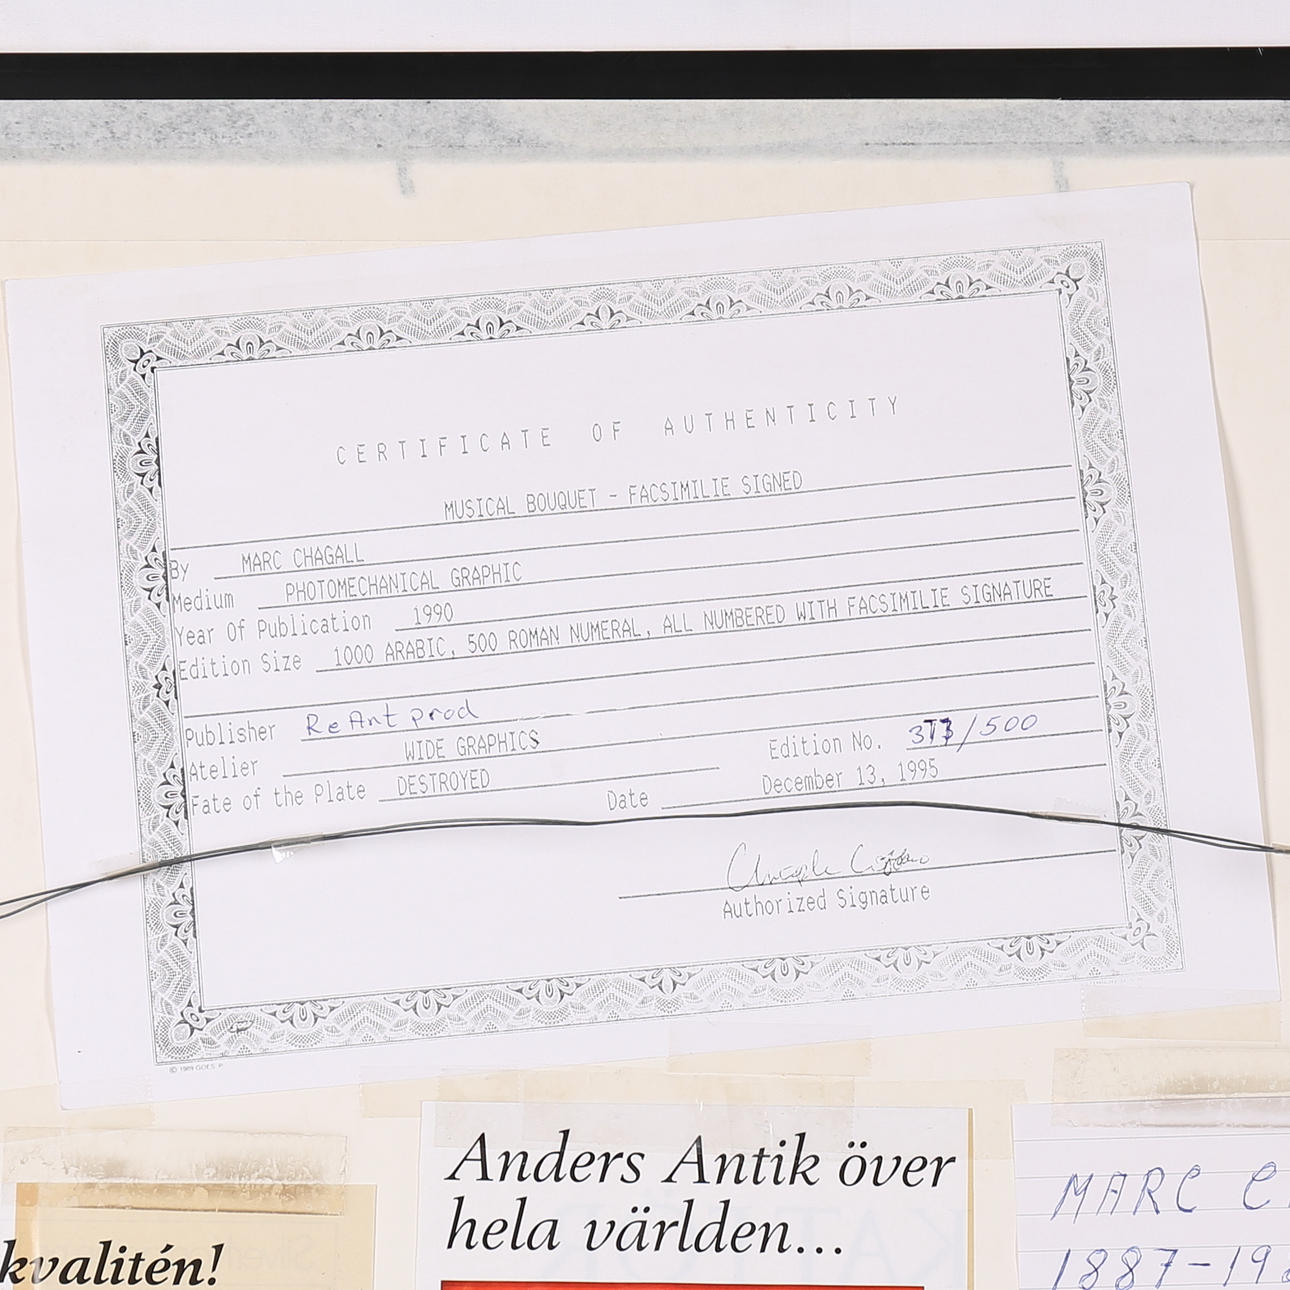 CERTIFICATE OF AUTHENTICITY
MUSICAL BOUQUET - FACSIMILIE SIGNED
By MARC CHAGALL
Medium PHOTOMECHANICAL GRAPHIC
Year Of Publication 1990
Edition Size 1000 ARABIC, 500 ROMAN NUMERAL, ALL NUMBERED WITH FACSIMILIE SIGNATURE
Publisher ReArt prod
Atelier WIDE GRAPHICS
Edition No. /500
Fate of the Plate DESTROYED
Date December 13, 1995
Authorized Signature
© 1989 GOES
kvalitén!
Anders Antik över
hela världen...
MARC C
1887-19